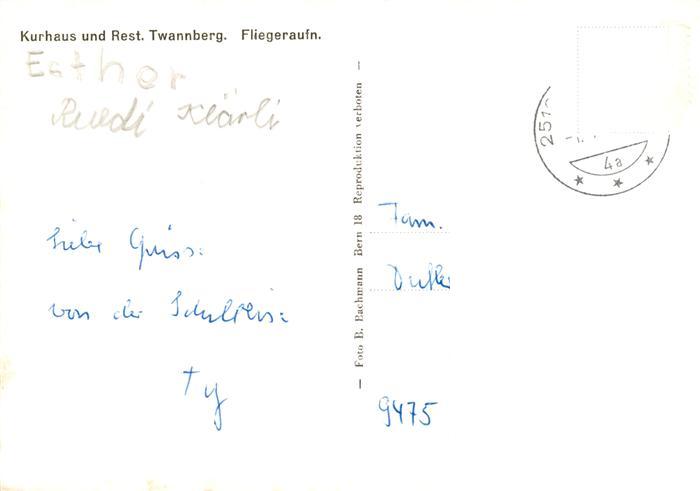 Kurhaus und Rest. Twannberg. Fliegeraufn.
Esther
Ruedi Klärli
liebe Grüss:
von der Schulreis:
Ty
— Foto E. Bachmann Bern 18 Reproduktion verboten —
251
4a
Fam.
9475